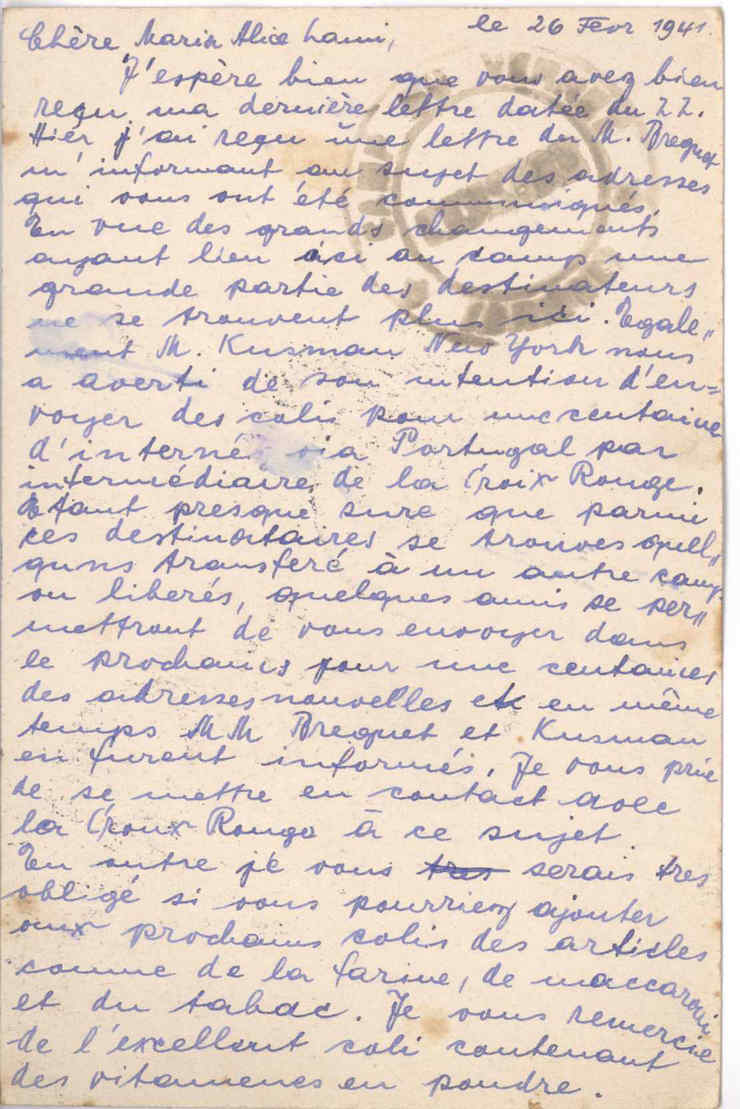 le 26 Fevr 1941.
Chère Maria Alice Lami,
J'espère bien que vous avez bien
reçu ma dernière lettre datée du 22.
Hier j'ai reçu une lettre du M. Breguet
m'informant au sujet des adresses
qui vous ont été communiqués.
En vue des grands changements
ayant lieu ici au camp une
grande partie des destinateurs
ne se trouvent plus ici. Egale„
ment M. Kusman New York nous
a averti de son intention d'en=
voyer des colis pour une centaine
d'internés via Portugal par
intermédiaire de la Croix Rouge.
Etant presque sure que parmi
ces destinataires se trouves quell„
quns transferé à un autre camp
ou liberés, quelques amis se per„
mettront de vous envoyer dans
le prochains jour une centaines
des adresses nouvelles et en même
temps MM Breguet et Kusman
en furent informés. Je vous prie
de se mettre en contact avec
la Croix Rouge à ce sujet.
En outre je vous tres serais tres
obligé si vous pourriez ajouter
aux prochains colis des articles
comme de la farine, de maccaroni
et du tabac. Je vous remercie
de l'excellent coli contenant
des vitamenes en poudre.